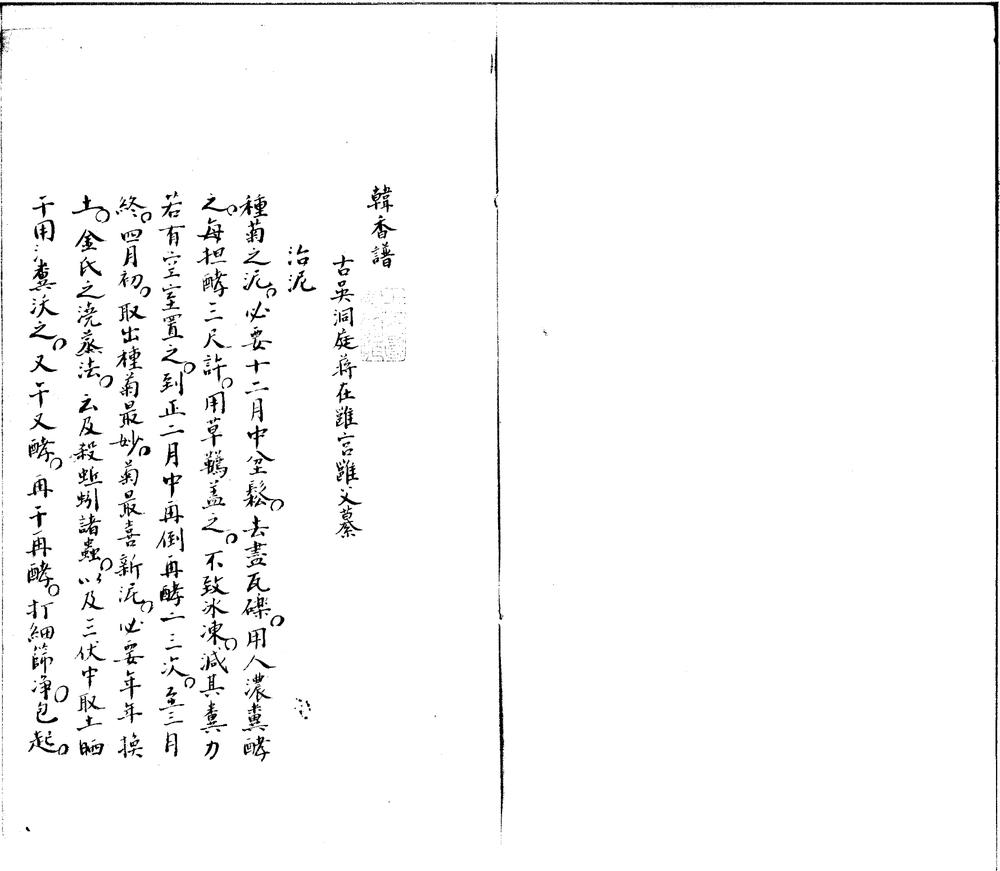 韓香譜
古吳洞庭蔣在雝言雝父纂
治泥
種菊之泥。必要十二月中坌鬆。去盡瓦礫。用人濃糞酵
之。每担酵三尺許。用草鶴盖之。不致冰凍。減其糞力
若有空室置之。到正二月中再倒再酵二三次。至三月
終。四月初。取出種菊最妙。菊最喜新泥。必要年年換
土。金氏之澆蒸法。云及殺蚯蚓諸蟲。以及三伏中取土晒
干用糞沃之。又干又酵。再干再酵。打細篩净。包起。